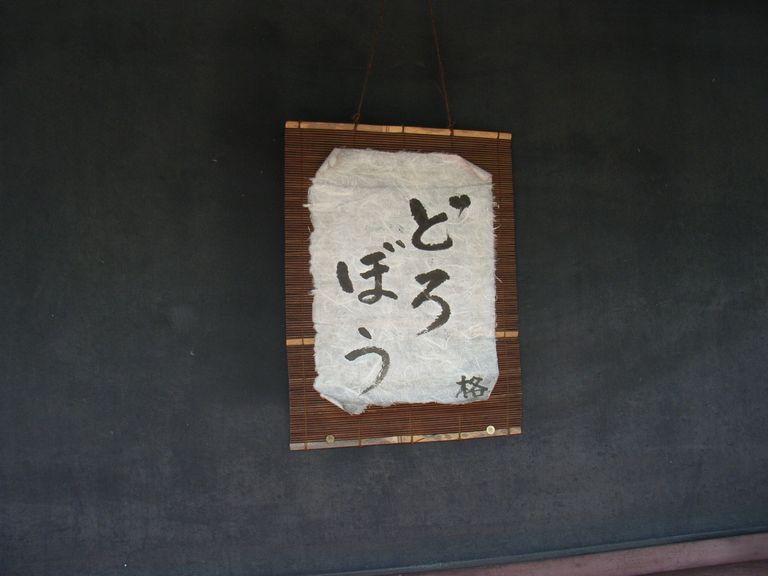 どろ
ぼう
格